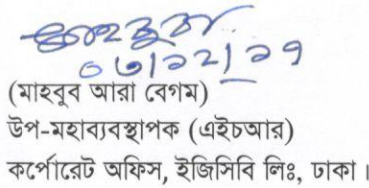 ০৩/১২/১৭
(মাহবুব আরা বেগম)
উপ-মহাব্যবস্থাপক (এইচআর)
কর্পোরেট অফিস, ইজিসিবি লিঃ, ঢাকা।